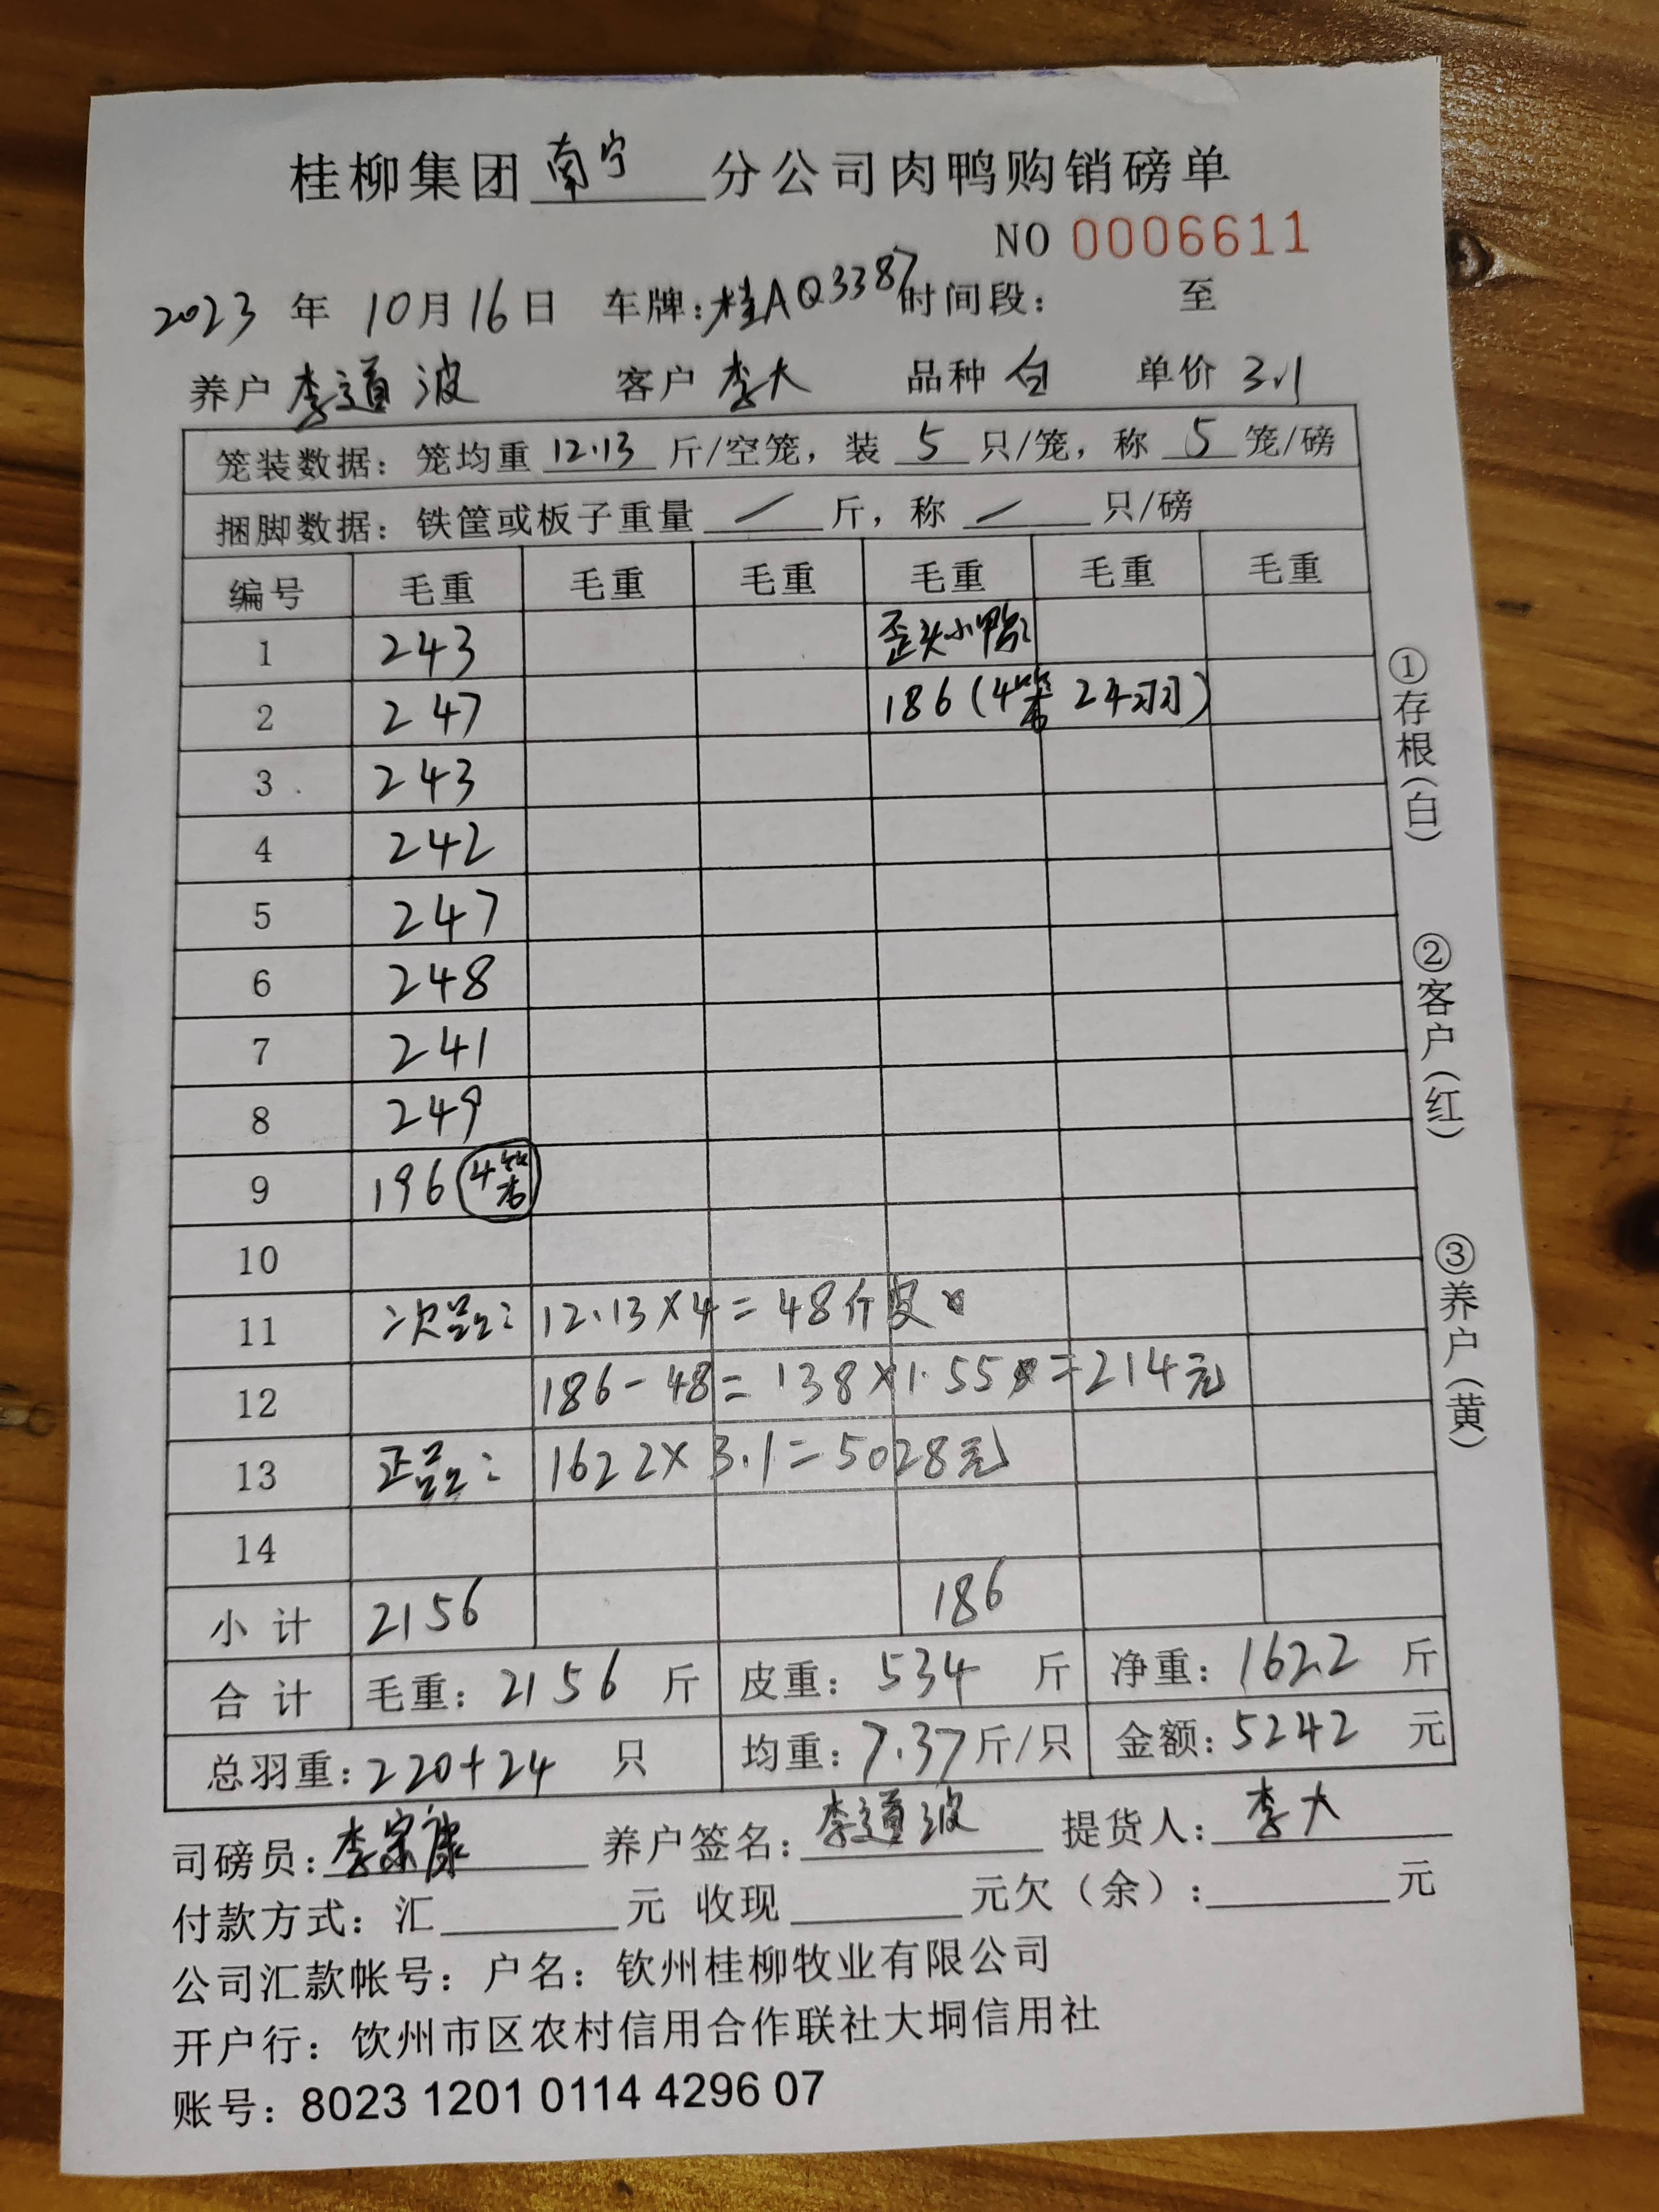 桂柳集团南宁分公司肉鸭购销磅单
NO 0006611
2023 年 10月16日 车牌:桂AQ3387 时间段: 至
养户 李道波 客户 李大 品种 白 单价 3.1
笼装数据: 笼均重 12.13 斤/空笼, 装 5 只/笼, 称 5 笼/磅
捆脚数据: 铁筐或板子重量 / 斤, 称 / 只/磅
编号 毛重 毛重 毛重 毛重 毛重 毛重
1 243 歪头小鸭:
2 247 186(4笼 24羽)
3 243
4 242
5 247
6 248
7 241
8 249
9 196 4笼
10
11 次品: 12.13×4=48斤皮
12 186-48=138×1.55=214元
13 正品: 1622×3.1=5028元
14
小计 2156 186
合计 毛重: 2156 斤 皮重: 534 斤 净重: 1622 斤
总羽重: 220+24 只 均重: 7.37斤/只 金额: 5242 元
司磅员: 李宗康 养户签名: 李道波 提货人: 李大
付款方式: 汇 元 收现 元欠(余): 元
公司汇款帐号: 户名: 钦州桂柳牧业有限公司
开户行: 钦州市区农村信用合作联社大垌信用社
账号: 8023 1201 0114 4296 07
①存根(白)
②客户(红)
③养户(黄)